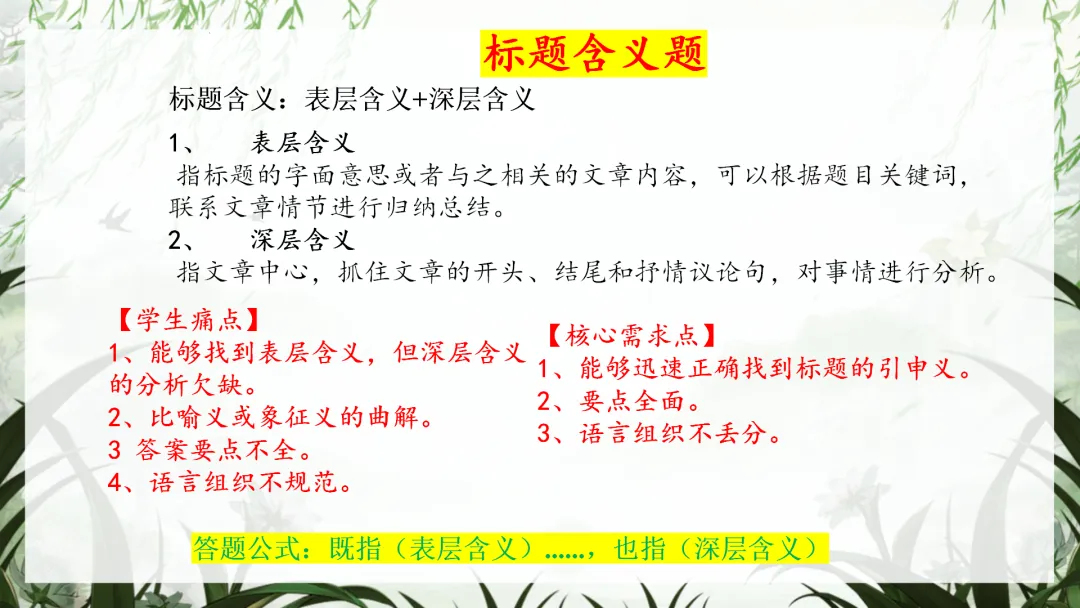 标题含义题
标题含义：表层含义+深层含义
1、 表层含义
指标题的字面意思或者与之相关的文章内容，可以根据题目关键词，
联系文章情节进行归纳总结。
2、 深层含义
指文章中心，抓住文章的开头、结尾和抒情议论句，对事情进行分析。
【学生痛点】
1、能够找到表层含义，但深层含义
的分析欠缺。
2、比喻义或象征义的曲解。
3 答案要点不全。
4、语言组织不规范。
【核心需求点】
1、能够迅速正确找到标题的引申义。
2、要点全面。
3、语言组织不丢分。
答题公式：既指（表层含义）……，也指（深层含义）